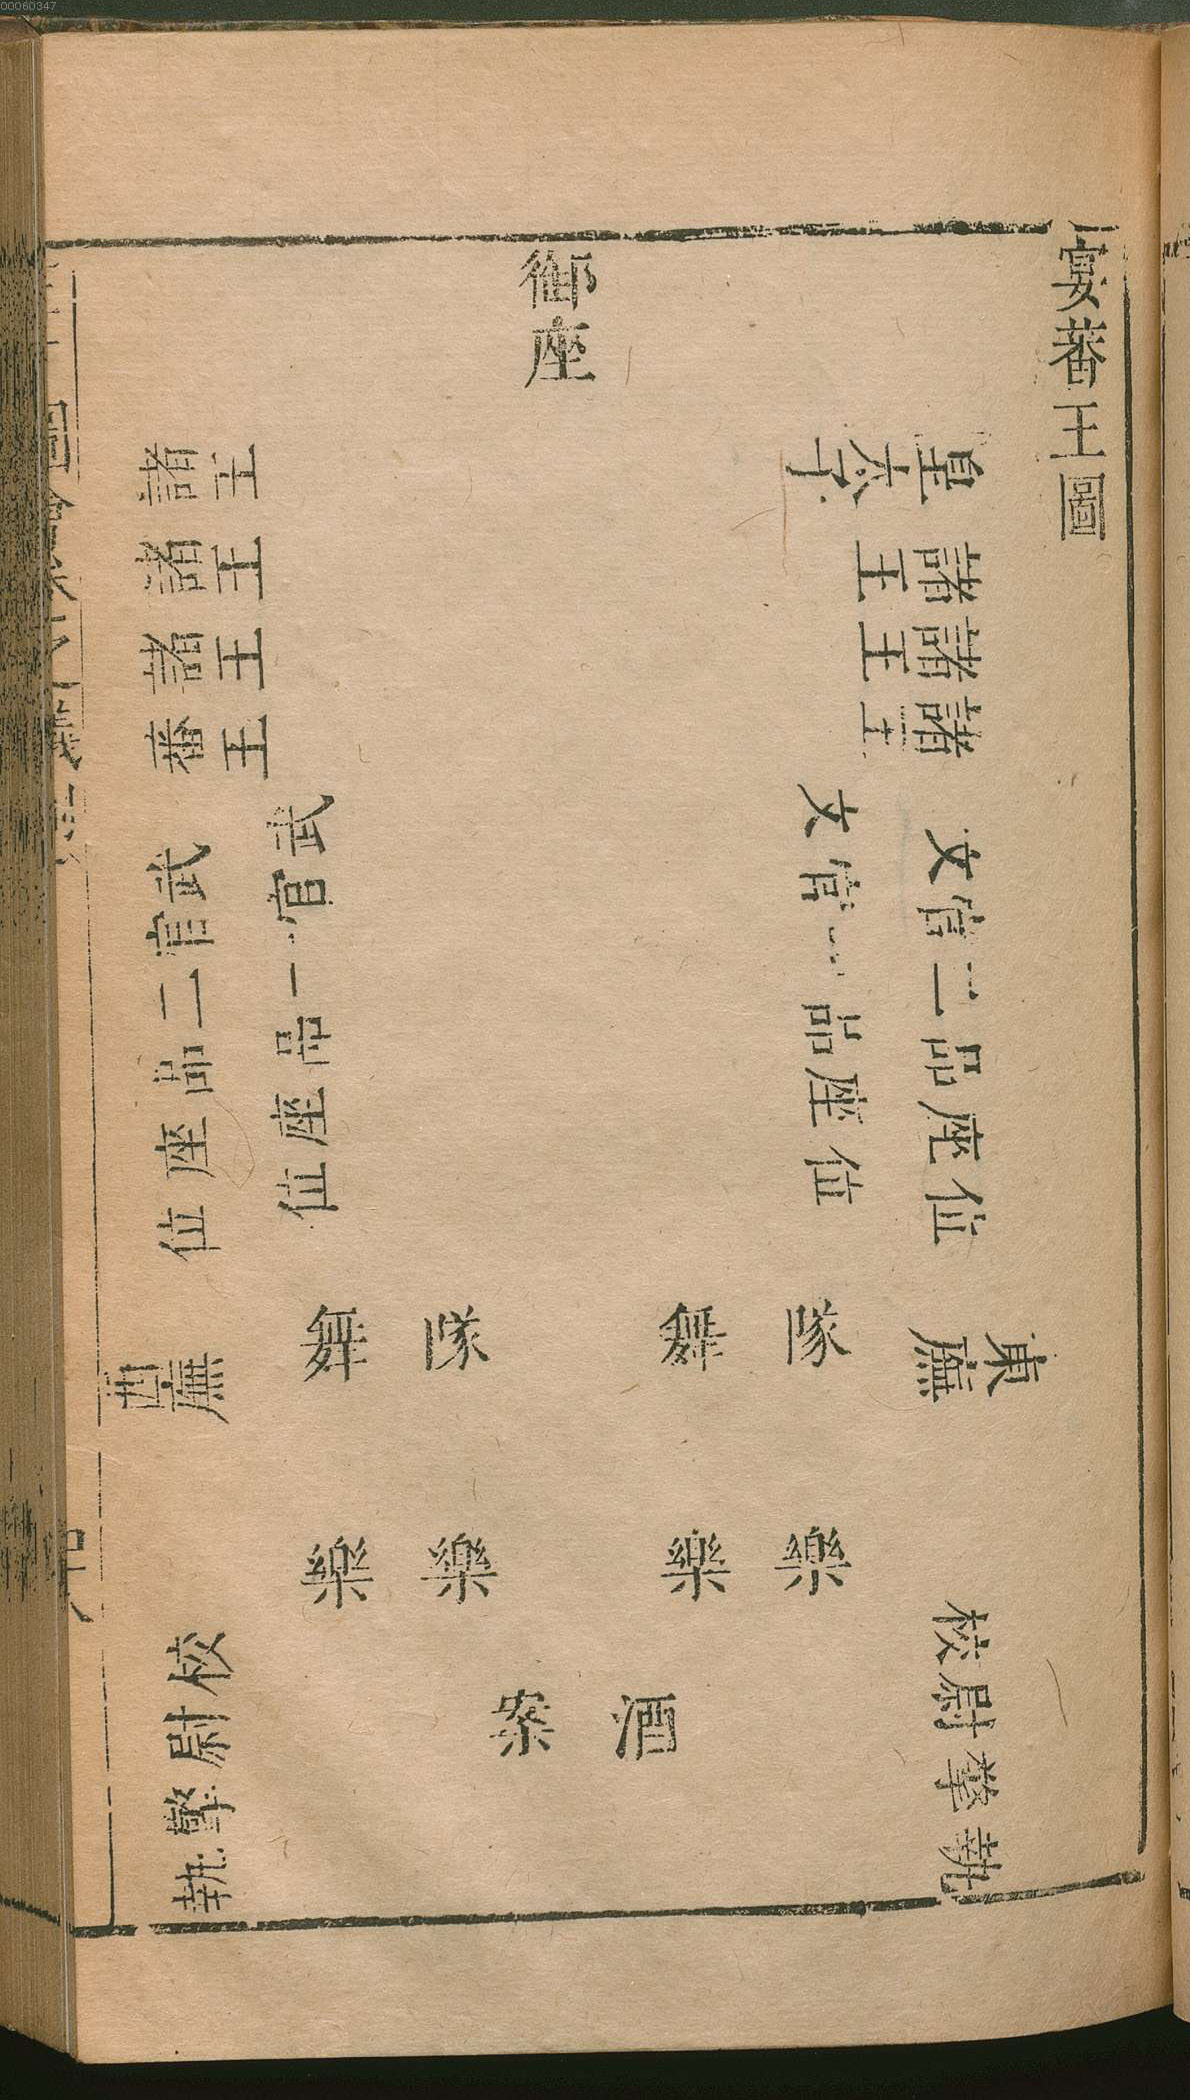 00060347
宴蕃王圖
御座
皇太子
諸王
諸王
諸王
文官二品座位
文官一品座位
東廡
校尉擎執
諸王
諸王
諸王
蕃王
武官一品座位
武官二品座位
西廡
校尉擎執
隊舞
隊舞
樂
樂
樂
樂
酒案